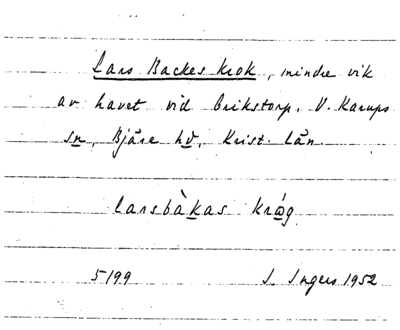 Lars Backes krok, mindre vik
av havet vid Erikstorp, V. Karups
sn, Bjäre hd, Krist. län.
larsbàkas krǻg
5199 I. Ingers 1952